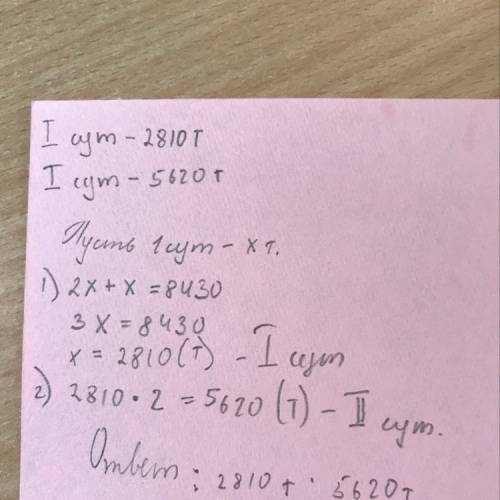 I сут - 2810т
I сут - 5620т
Пусть 1 сут - х т.
1) 2х + х = 8430
3х = 8430
х = 2810 (т) - I сут
2) 2810 · 2 = 5620 (т) - II сут.
Ответ: 2810 т · 5620т